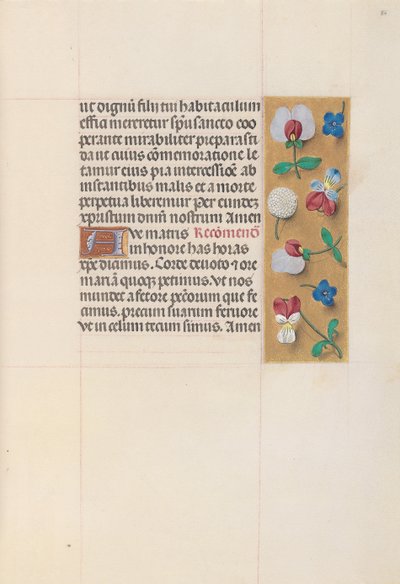 ut dignū filij tui habitaculum
effici mereretur spūsancto coo
perante mirabiliter preparasti
da ut cuius cōmemoratione le
tamur eius pia intercessiōe ab
instantibus malis et a morte
perpetua liberemur per eundez
xpristum dnm̄ nostrum Amen
Ave matris Recōmenō
in honore has horas
xp̄e dicimus. Corde deuoto ⁊ ore
mariā quoqȝ petimus. Ut nos
mundet a fetore pctōrum que fe
cimus. precum suarum feruore
Ut in celum tecum simus. Amen